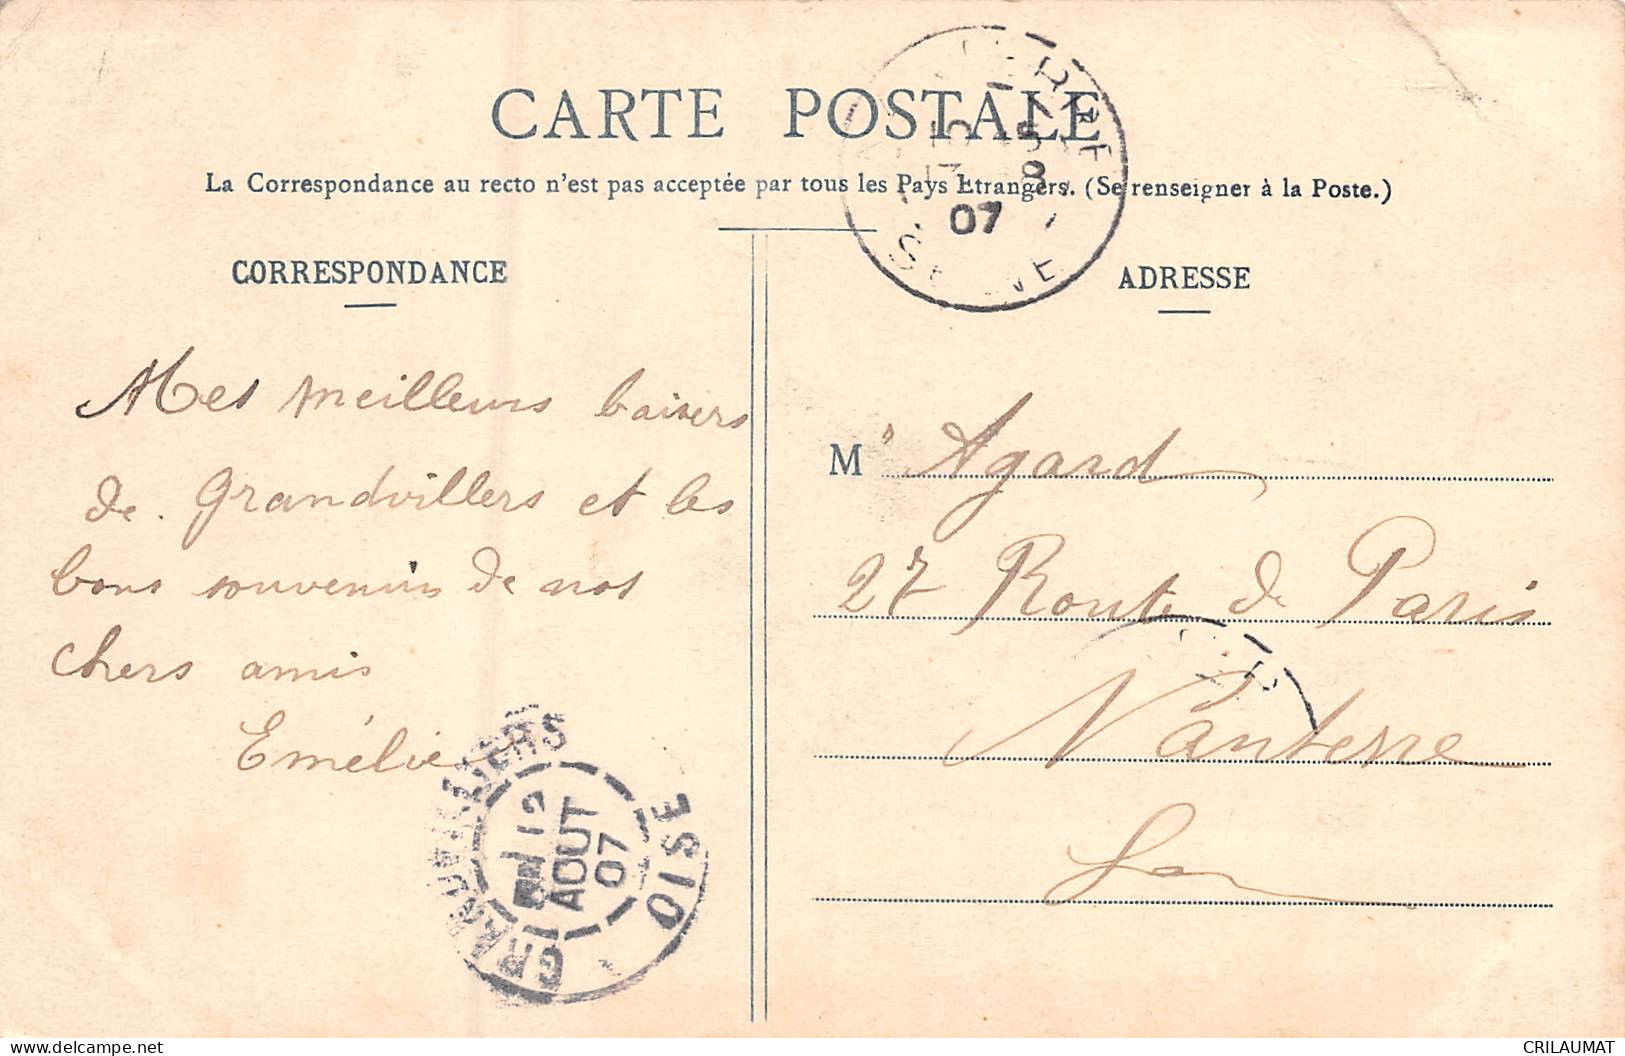 CARTE POSTALE
La Correspondance au recto n'est pas acceptée par tous les Pays Etrangers. (Se renseigner à la Poste.)
CORRESPONDANCE
Mes meilleurs baisers
de Grandvillers et les
bons souvenirs de nos
chers amis
Emélie
GRANDVILLIERS
12
AOUT
07
OISE
ADRESSE
M Agard
27 Route de Paris
Nanterre
07
SEINE
CRILAUMAT